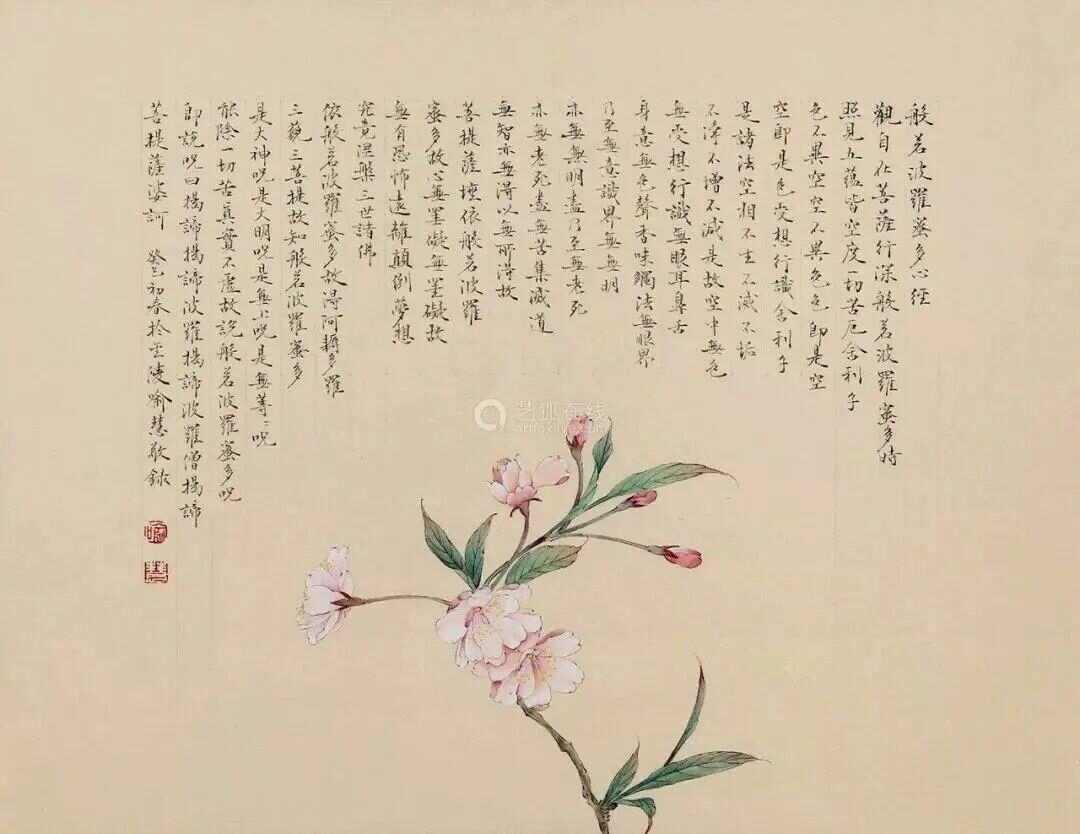 般若波羅蜜多心經
觀自在菩薩行深般若波羅蜜多時
照見五蘊皆空度一切苦厄舍利子
色不異空空不異色色即是空
空即是色受想行識舍利子
是諸法空相不生不滅不垢
不淨不增不減是故空中無色
無受想行識無眼耳鼻舌
身意無色聲香味觸法無眼界
乃至無意識界無無明
亦無無明盡乃至無老死
亦無老死盡無苦集滅道
無智亦無得以無所得故
菩提薩埵依般若波羅
蜜多故心無罣礙無罣礙故
無有恐怖遠離顛倒夢想
究竟涅槃三世諸佛
依般若波羅蜜多故得阿耨多羅
三藐三菩提故知般若波羅蜜多
是大神呪是大明呪是無上呪是無等:呪
能除一切苦真實不虛故說般若波羅蜜多呪
即說呪曰揭諦揭諦波羅揭諦波羅僧揭諦
菩提薩婆訶 癸巳初春於金陵喻慧敬録
喻
慧
艺狐在线
artfoxlive.com